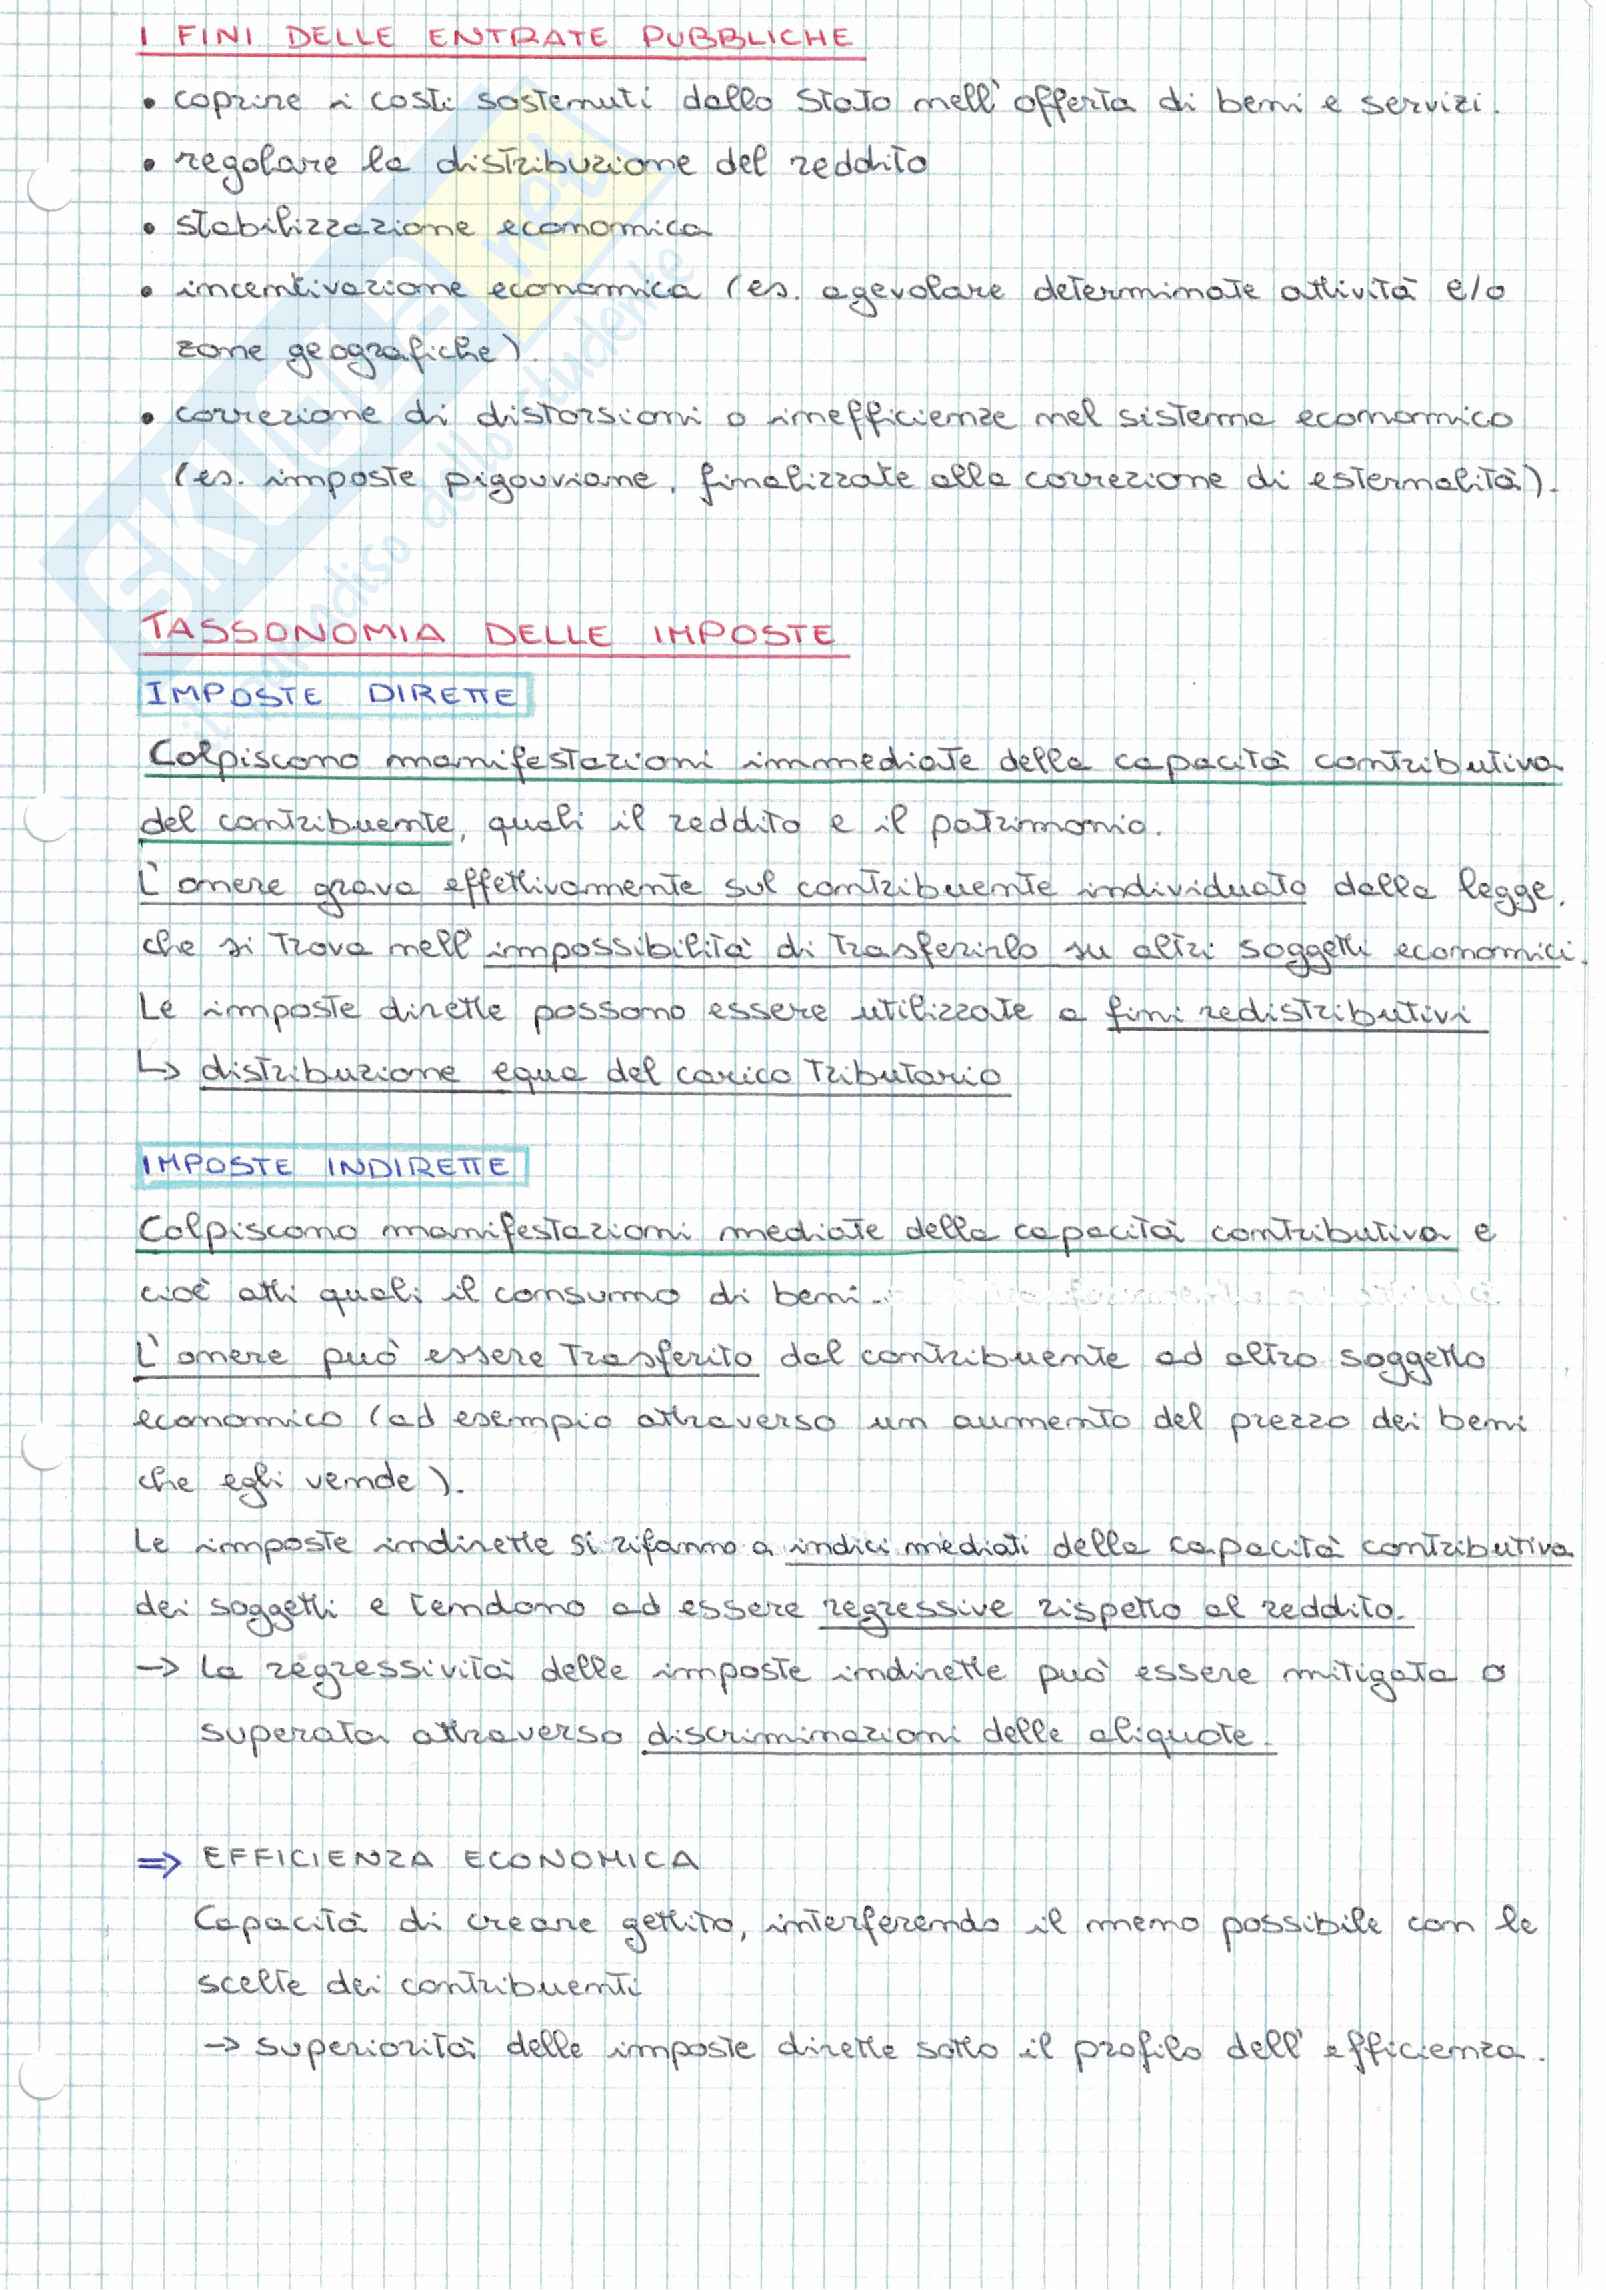 I FINI DELLE ENTRATE PUBBLICHE
• coprire i costi sostenuti dallo Stato nell'offerta di beni e servizi.
• regolare la distribuzione del reddito
• stabilizzazione economica
• incentivazione economica (es. agevolare determinate attività e/o
zone geografiche).
• correzione di distorsioni o inefficienze nel sistema economico
(es. imposte pigouviane, finalizzate alla correzione di esternalità).
SKUOLA.net
il paradiso dello studente
TASSONOMIA DELLE IMPOSTE
IMPOSTE DIRETTE
Colpiscono manifestazioni immediate della capacità contributiva
del contribuente, quali il reddito e il patrimonio.
L'onere grava effettivamente sul contribuente individuato dalla legge,
che si trova nell'impossibilità di trasferirlo su altri soggetti economici.
Le imposte dirette possono essere utilizzate a fini redistributivi
↳ distribuzione equa del carico tributario
IMPOSTE INDIRETTE
Colpiscono manifestazioni mediate della capacità contributiva e
cioè atti quali il consumo di beni.
L'onere può essere trasferito dal contribuente ad altro soggetto
economico (ad esempio attraverso un aumento del prezzo dei beni
che egli vende).
Le imposte indirette si rifanno a indici mediati della capacità contributiva
dei soggetti e tendono ad essere regressive rispetto al reddito.
→ La regressività delle imposte indirette può essere mitigata o
superata attraverso discriminazioni delle aliquote.
⇒ EFFICIENZA ECONOMICA
Capacità di creare gettito, interferendo il meno possibile con le
scelte dei contribuenti
→ superiorità delle imposte dirette sotto il profilo dell'efficienza.